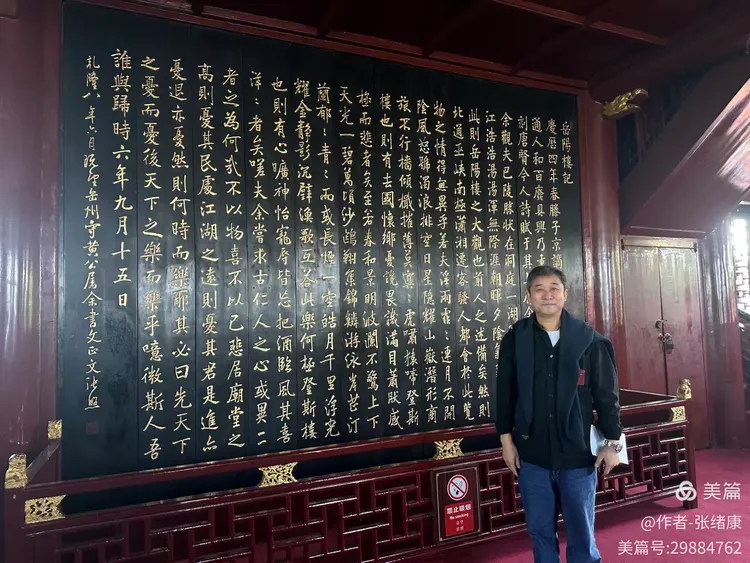 岳陽樓記
慶曆四年春滕子京謫
通人和百廢具興乃重
刻唐賢今人詩賦于其
余觀夫巴陵勝狀在洞庭一湖
江浩浩湯湯渾無際涯朝暉夕陰
此則岳陽樓之大觀也前人之述備矣然則
北通巫峽南極瀟湘遷客騷人都會於此覽
物之情得無異乎若夫淫雨霏〻連月不開
陰風怒號濁浪排空日星隱耀山嶽潛形商
旅不行檣傾檝摧薄暮冥〻虎嘯猿啼登斯
樓也則有去國懷鄉憂讒畏譏滿目蕭然感
極而悲者矣至若春和景明波瀾不驚上下
天光一碧萬頃沙鷗翔集錦鱗游泳岸芷汀
蘭郁〻青〻而或長煙一空皓月千里浮光
耀金靜影沉璧漁歌互答此樂何極登斯樓
也則有心曠神怡寵辱皆忘把酒臨風其喜
洋〻者矣嗟夫余嘗求古仁人之心或異二
者之為何哉不以物喜不以己悲居廟堂之
高則憂其民處江湖之遠則憂其君是進亦
憂退亦憂然則何時而樂耶其必曰先天下
之憂而憂後天下之樂而樂乎噫微斯人吾
誰與歸時六年九月十五日
乾隆八年六月既望岳州守黃公屬余書文正文張照
禁止吸烟
No smoking
美篇
@作者-张绪康
美篇号:29884762